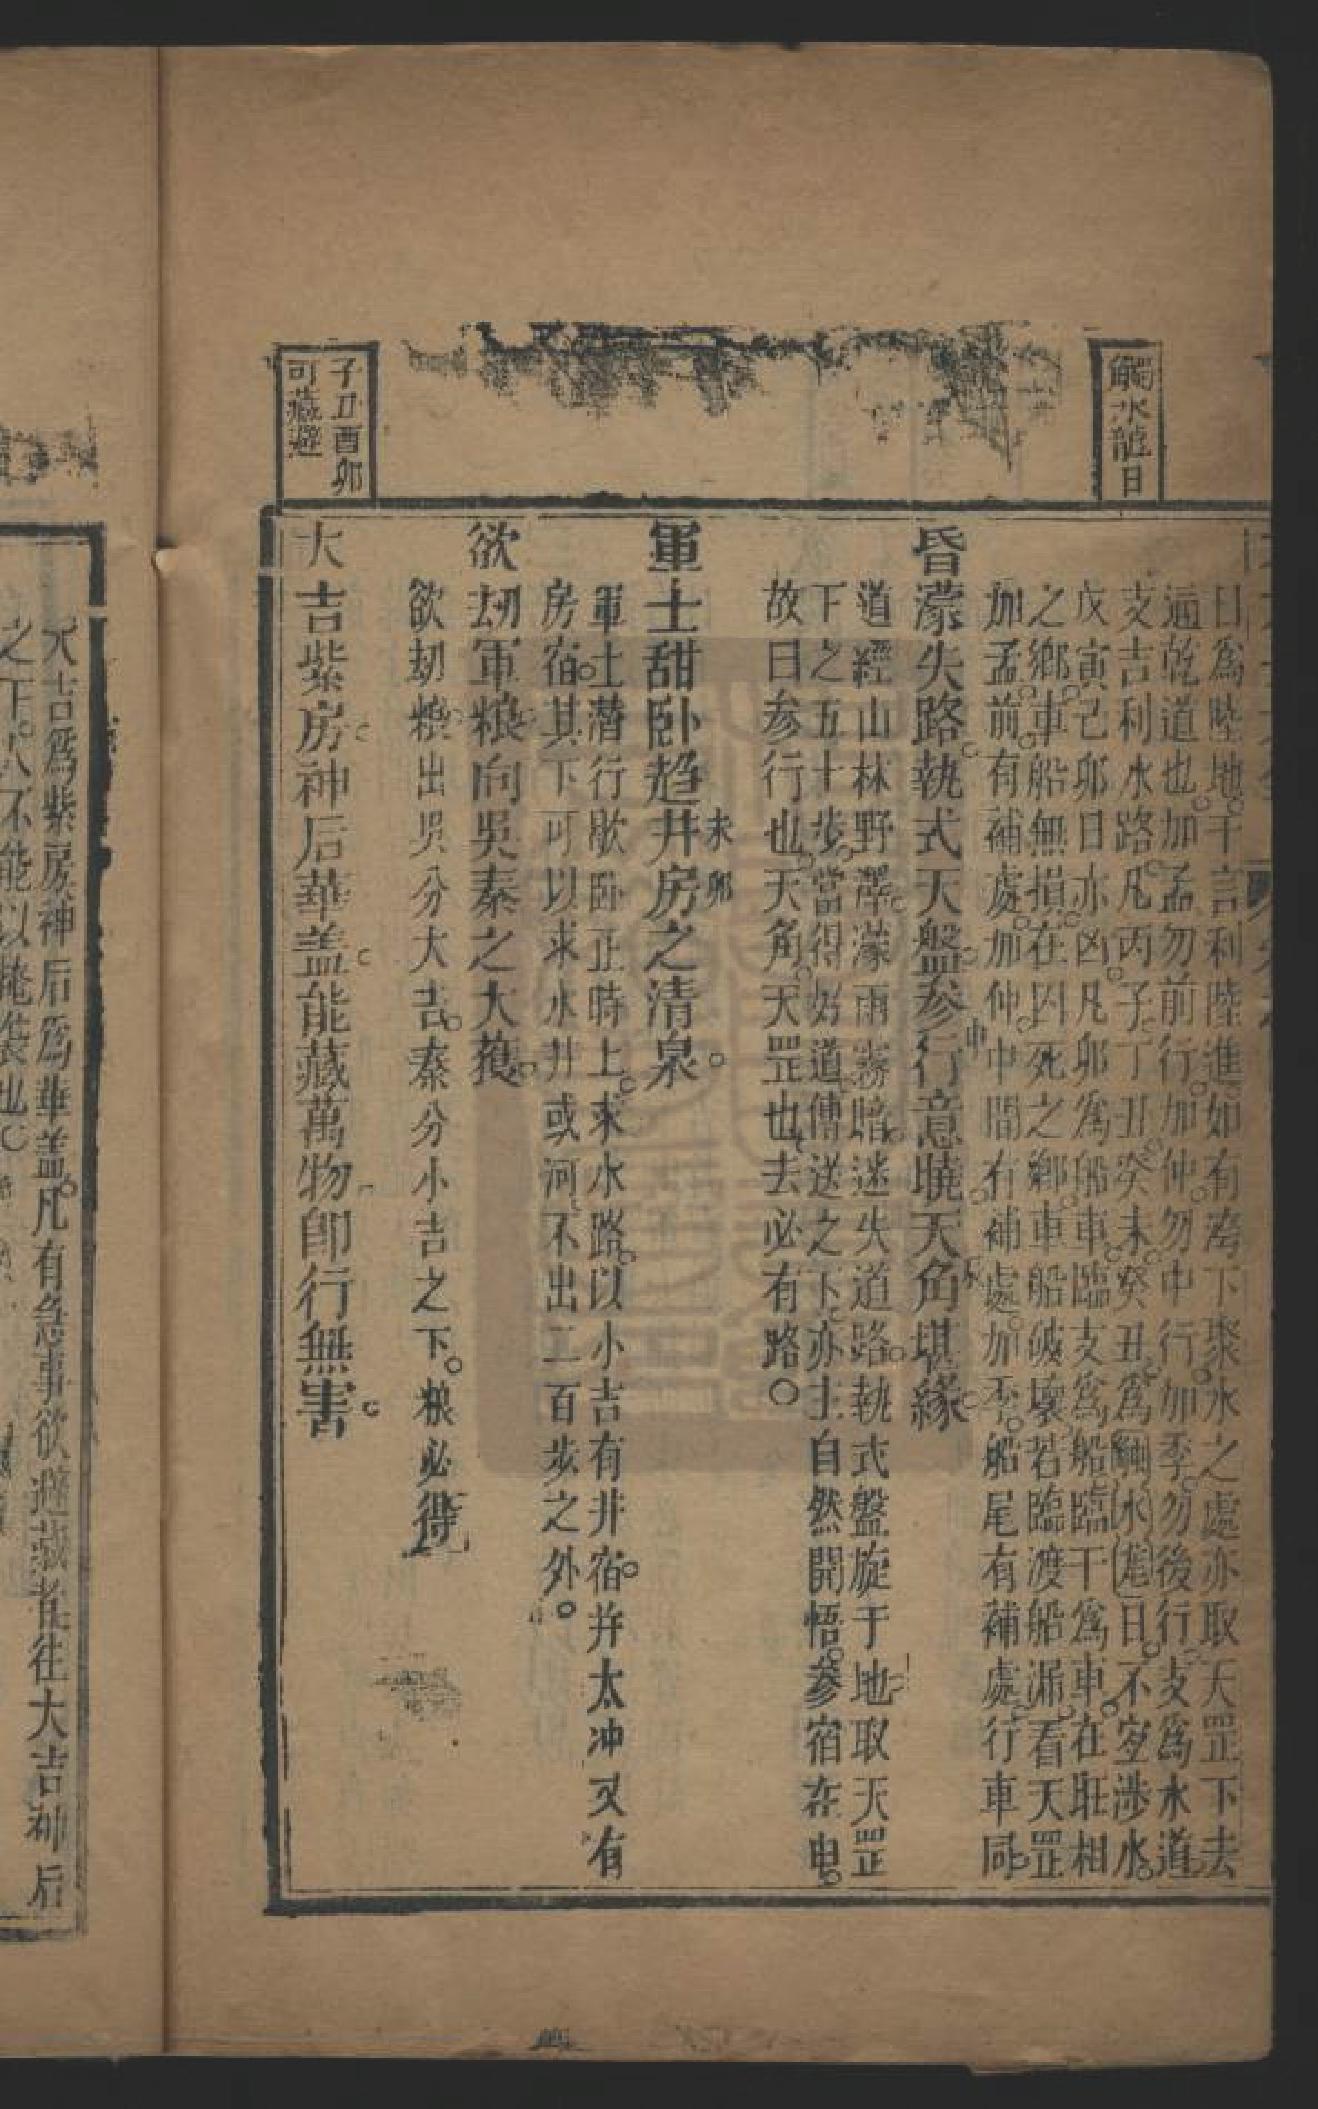 觸水龍日
日為陸地干言利陸進如有灣下聚水之處亦取天罡下去
逼乾道也加孟勿前行加仲勿中行加季勿後行支為水道
支吉利水路凡丙子丁丑癸未癸丑為觸水龍日不宜涉水
戊寅己卯日亦凶凡卯為船車臨支為船臨干為車在旺相
之鄉車船無損在囚死之鄉車船破壞若臨渡船漏看天罡
加孟前有補處加仲中間有補處加季船尾有補處行車同
昏濛失路執式天盤參行意曉天角堪緣
申
辰
道經山林野澤濛雨霧暗迷失道路執式盤旋于地取天罡
下之五十步當得好道傳送之下亦主自然開悟參宿在申
故曰參行也天角天罡也去必有路
軍士甜臥趋井房之清泉
未 卯
軍士潛行歇臥正時上求水路以小吉有井宿并太冲又有
房宿其下可以求水井或河不出二百步之外
欲刼軍粮向吳秦之大蒦
欲刼粮出吳分大吉秦分小吉之下粮必得
子丑酉卯
可藏避
大吉紫房神后華盖能藏萬物卽行無害
大吉為紫房神后為華盖凡有急事欲避藏者能往大吉神后
之下人不能以掩襲也